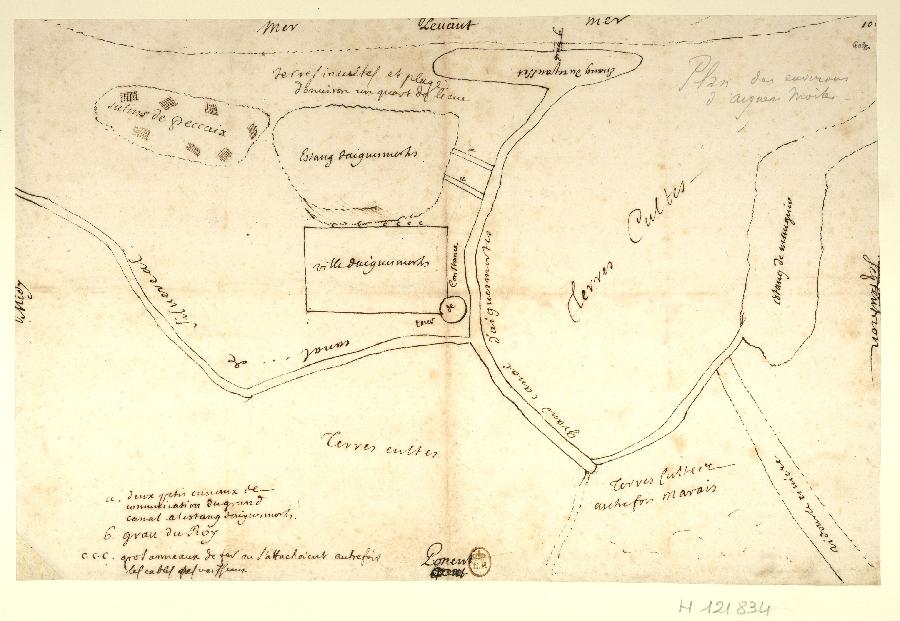 Mer Levant mer
10
Plan des environs
d'aigues Mortes
Terres incultes et plage
d'environ un quart de lieue
Salins de peccaix
Estang daiguesmorts
a
ville daiguesmorts
tour de Constance
grand canal daiguesmortes
Terres Cultes
Estang de mauguio
canal de Silvereal
Le Midy
Terres cultes
Terres Cultes
autrefois Marais
a. deux petis canaux de
comunication du grand
canal a lestang daiguesmorts.
b. grau du Roy
c. c. c. gros anneaux de fer ou s'attachoient autrefois
les cables des vaisseaux
Ponent
H 121834